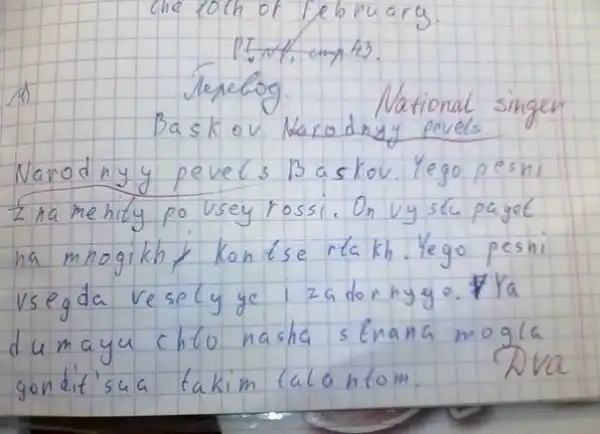 the 10th of February.
PI, №1, стр 43.
Перевод.
National singer
Baskov Narodnyy pevets.
Narodnyy pevets Baskov. Yego pesni
znamenity po vsey rossi. On vystupayet
na mnogikh kontsertakh. Yego pesni
vsegda veselyye i zadornyye. Ya
dumayu chto nasha strana mogla
gordit'sua takim talantom.
Dva